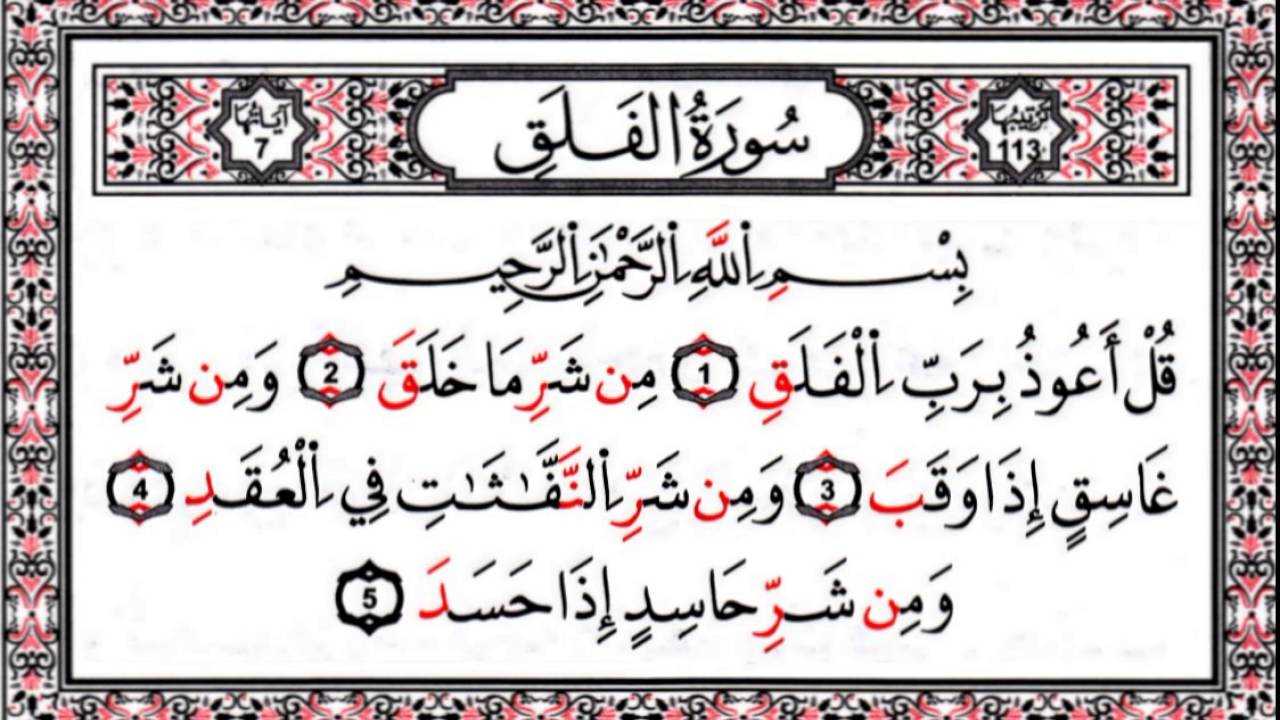 ترتيبها 113
سُورَةُ الفَلَقِ
آياتها 7
بِسْمِ اِ۬للَّهِ اِ۬لرَّحْمَٰنِ اِ۬لرَّحِيمِ
قُلْ أَعُوذُ بِرَبِّ اِ۬لْفَلَقِ 1 مِن شَرِّ مَا خَلَقَ 2 وَمِن شَرِّ
غَاسِقٍ إِذَا وَقَبَ 3 وَمِن شَرِّ اِ۬لنَّفَّٰثَٰتِ فِي اِ۬لْعُقَدِ 4
وَمِن شَرِّ حَاسِدٍ إِذَا حَسَدَ 5